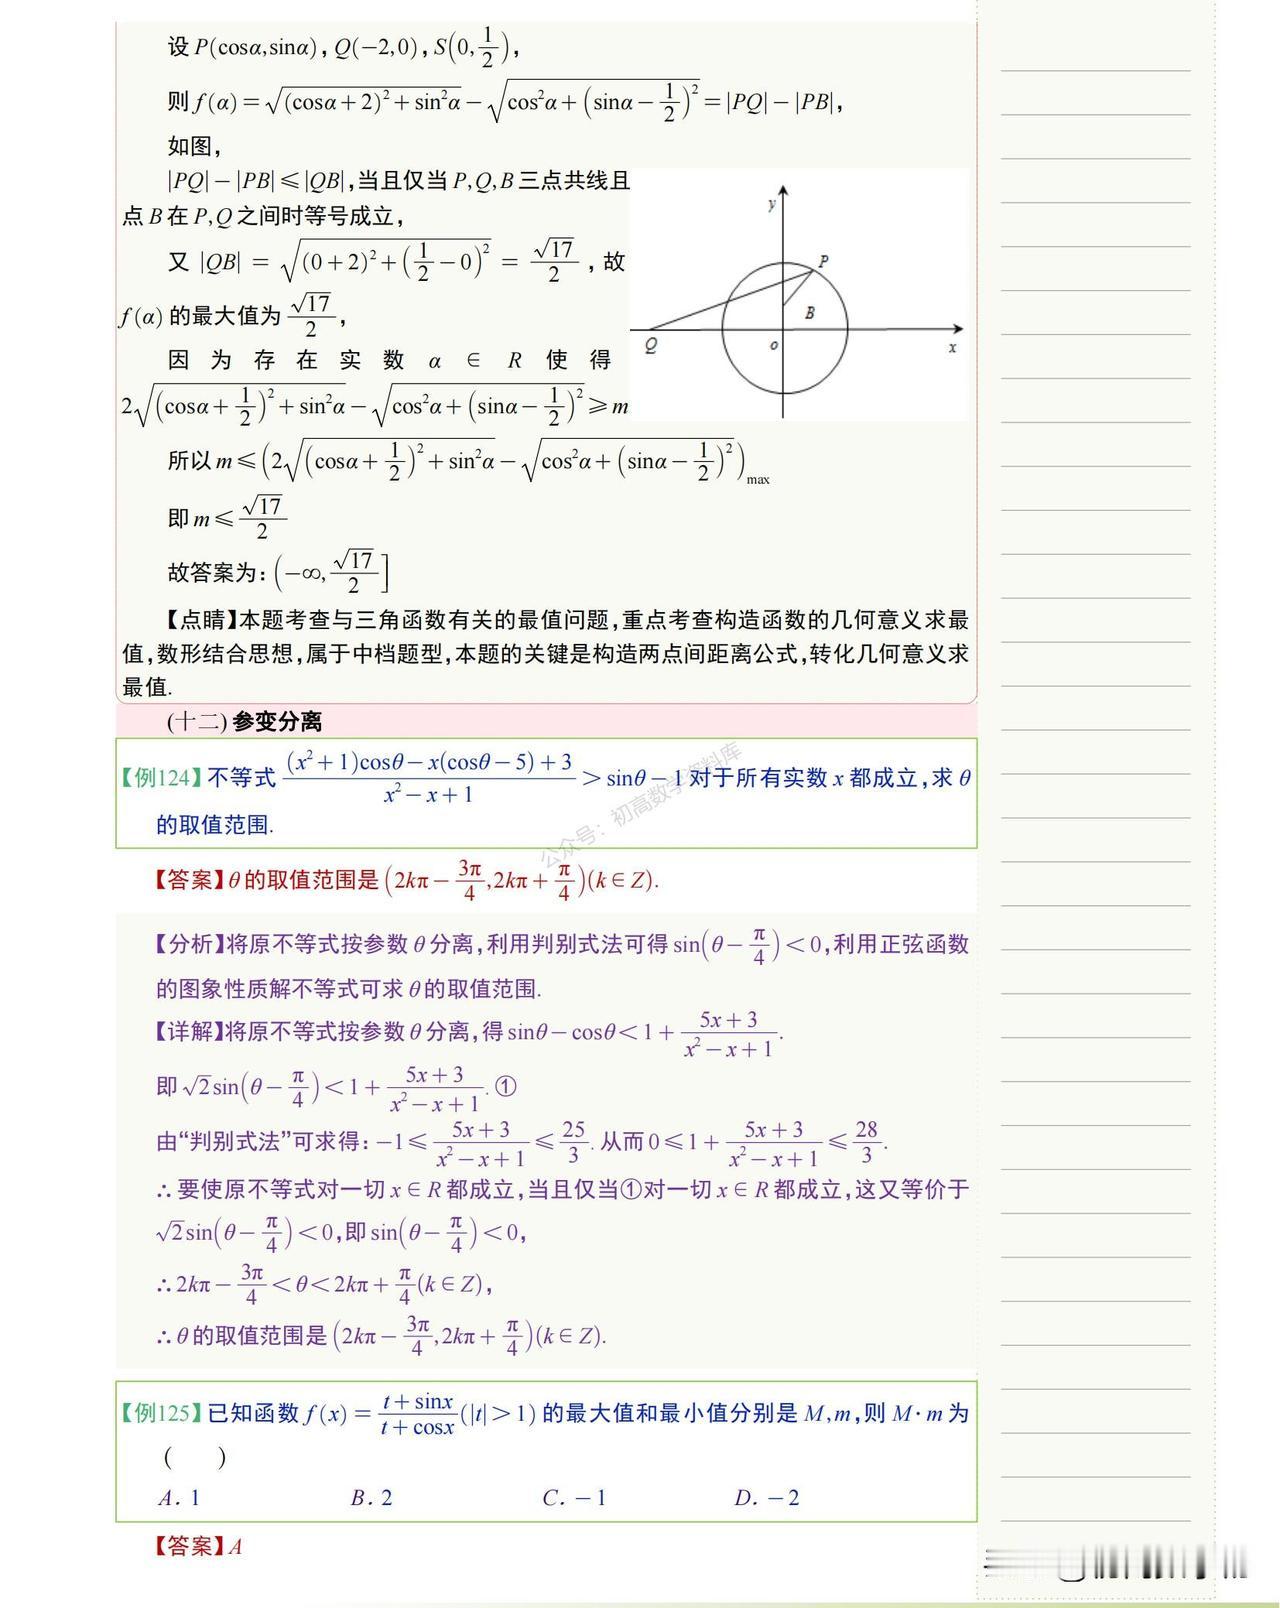 设P(cosα,sinα),Q(−2,0),S(0,1/2),
则f(α)=√((cosα+2)²+sin²α)−√(cos²α+(sinα−1/2)²)=|PQ|−|PB|,
如图,
|PQ|−|PB|≤|QB|,当且仅当P,Q,B三点共线且
点B在P,Q之间时等号成立,
又 |QB| = √((0+2)²+(1/2−0)²) = √17/2 , 故
f(α)的最大值为√17/2,
因为存在实数α∈R使得
2√((cosα+1/2)²+sin²α)−√(cos²α+(sinα−1/2)²)≥m
y
P
B
Q
o
x
所以m≤(2√((cosα+1/2)²+sin²α)−√(cos²α+(sinα−1/2)²))max
即m≤√17/2
故答案为:(−∞,√17/2]
【点睛】本题考查与三角函数有关的最值问题,重点考查构造函数的几何意义求最
值,数形结合思想,属于中档题型,本题的关键是构造两点间距离公式,转化几何意义求
最值.
(十二)参变分离
【例124】不等式 ((x²+1)cosθ−x(cosθ−5)+3)/(x²−x+1)>sinθ−1对于所有实数x都成立,求θ
的取值范围.
公众号：初高数学资料库
【答案】θ的取值范围是(2kπ−3π/4,2kπ+π/4)(k∈Z).
【分析】将原不等式按参数θ分离,利用判别式法可得sin(θ−π/4)<0,利用正弦函数
的图象性质解不等式可求θ的取值范围.
【详解】将原不等式按参数θ分离,得sinθ−cosθ<1+(5x+3)/(x²−x+1).
即√2sin(θ−π/4)<1+(5x+3)/(x²−x+1).①
由“判别式法”可求得:−1≤(5x+3)/(x²−x+1)≤25/3.从而0≤1+(5x+3)/(x²−x+1)≤28/3.
∴要使原不等式对一切x∈R都成立,当且仅当①对一切x∈R都成立,这又等价于
√2sin(θ−π/4)<0,即sin(θ−π/4)<0,
∴2kπ−3π/4<θ<2kπ+π/4(k∈Z),
∴θ的取值范围是(2kπ−3π/4,2kπ+π/4)(k∈Z).
【例125】已知函数f(x)=(t+sinx)/(t+cosx)(|t|>1)的最大值和最小值分别是M,m,则M·m为
(　　)
A. 1　　B. 2　　C. −1　　D. −2
【答案】A